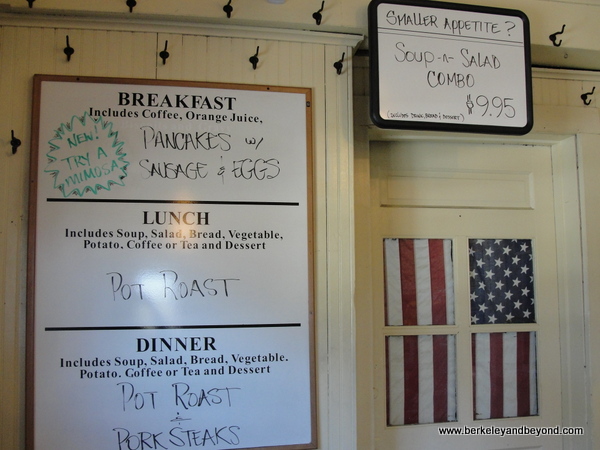 BREAKFAST
Includes Coffee, Orange Juice,
NEW!
TRY A
MIMOSA
PANCAKES W/
SAUSAGE & EGGS
LUNCH
Includes Soup, Salad, Bread, Vegetable,
Potato, Coffee or Tea and Dessert
POT ROAST
DINNER
Includes Soup, Salad, Bread, Vegetable.
Potato. Coffee or Tea and Dessert
POT ROAST
&
PORK STEAKS
SMALLER APPETITE?
SOUP -N- SALAD
COMBO
$9.95
(INCLUDES DRINK, BREAD & DESSERT)
www.berkeleyandbeyond.com